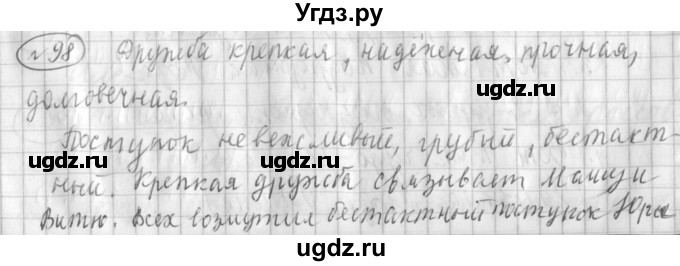 Угдз.ру
№98 Дружба крепкая, надёжная, прочная,
долговечная.
Поступок невежливый, грубый, бестакт-
ный. Крепкая дружба связывает Машу и
Витю. Всех возмутил бестактный поступок Юры
ugdz.ru ugdz.ru ugdz.ru
ugdz.ru ugdz.ru ugdz.ru
ugdz.ru